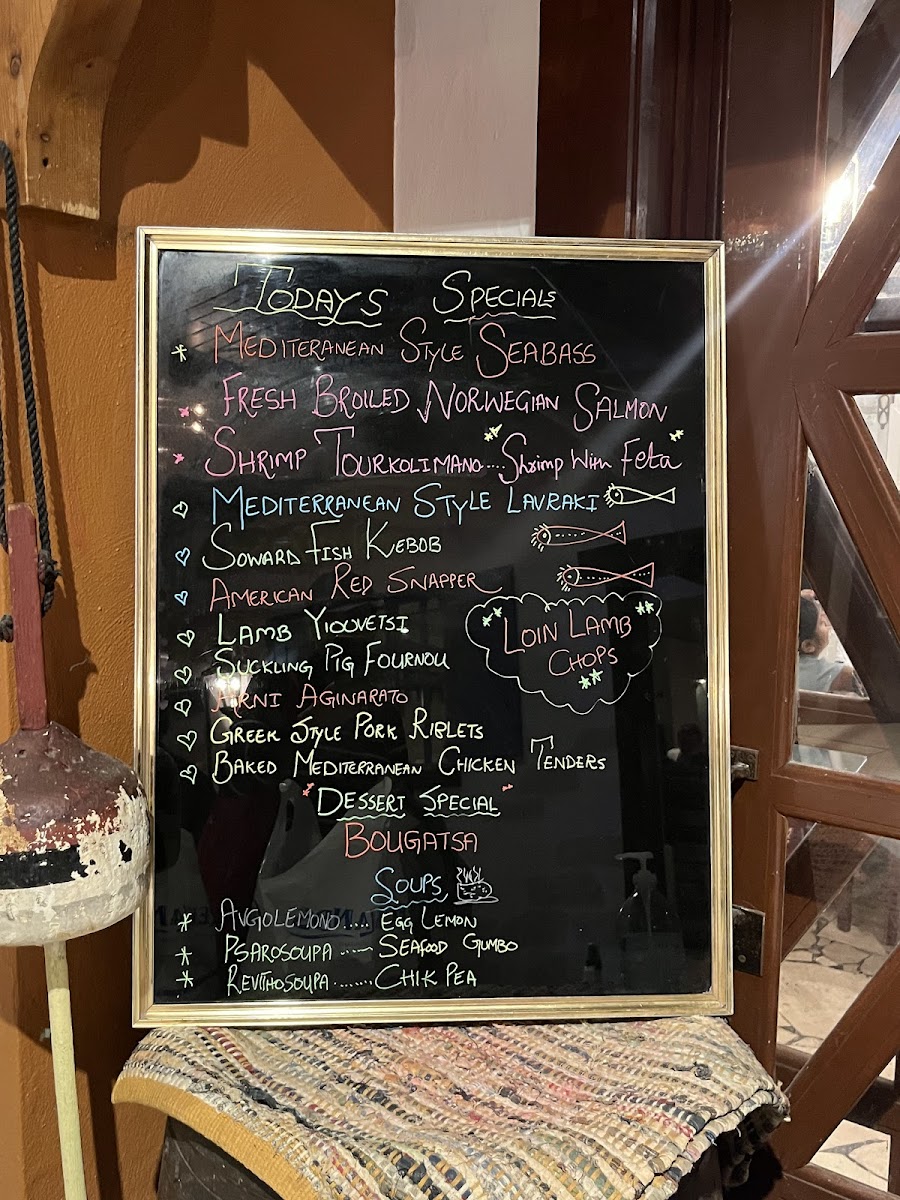 TODAYS SPECIALS
* MEDITERANEAN STYLE SEABASS
* FRESH BROILED NORWEGIAN SALMON
* SHRIMP TOURKOLIMANO....Shrimp With Feta
MEDITERRANEAN STYLE LAVRAKI
SOWARD FISH KEBOB
AMERICAN RED SNAPPER
LAMB YIOUVETSI
SUCKLING PIG FOURNOU
LOIN LAMB
CHOPS
ARNI AGINARATO
GREEK STYLE PORK RIBLETS
BAKED MEDITERRANEAN CHICKEN TENDERS
"DESSERT SPECIAL"
BOUGATSA
SOUPS
* AVGOLEMONO.... EGG LEMON
* PSAROSOUPA ..... SEAFOOD GUMBO
* REVITHOSOUPA ....... CHIK PEA